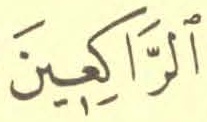 ٱلرَّاكِعِينَ